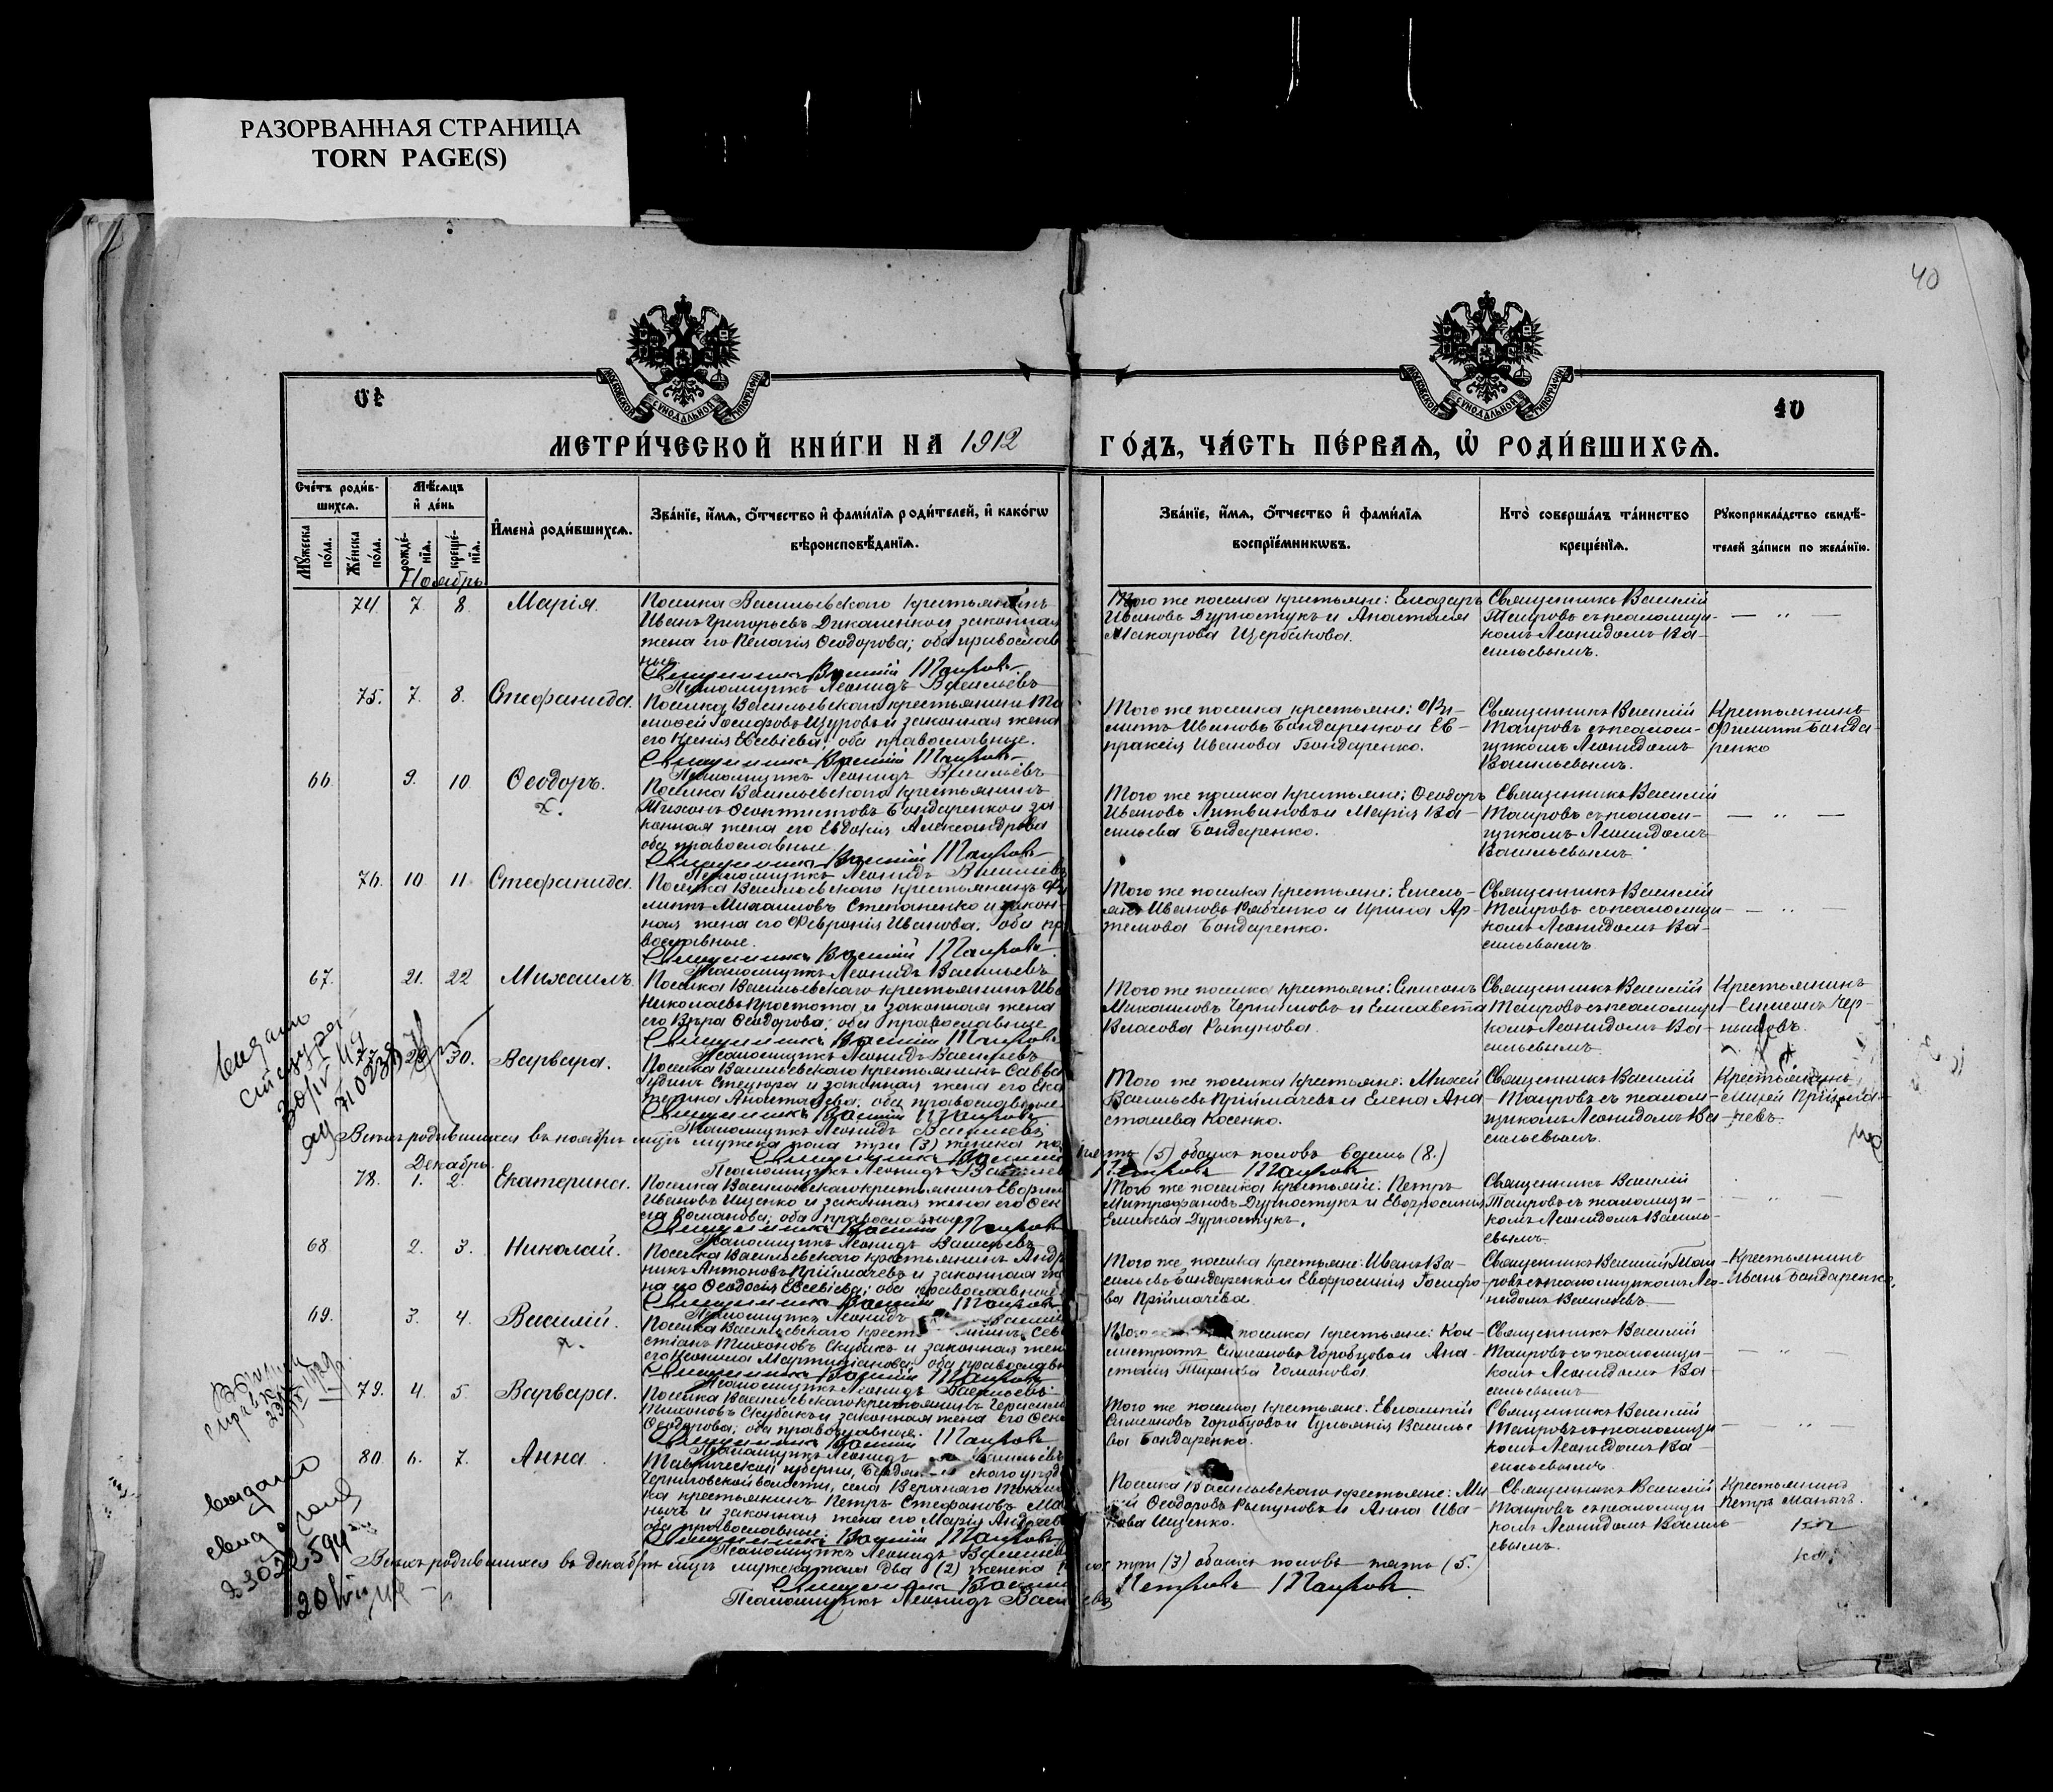 РАЗОРВАННАЯ СТРАНИЦА
TORN PAGE(S)
40
40
МОСКОВСКОЙ СѴНОДАЛЬНОЙ ТИПОГРАФІИ
МОСКОВСКОЙ СѴНОДАЛЬНОЙ ТИПОГРАФІИ
МЕТРИ́ЧЕСКОЙ КНИ́ГИ НА 1912 ГО́ДЪ, ЧА́СТЬ ПЕ́РВАѦ, Ѡ҆ РОДИ́ВШИХСѦ.
Сче́тъ роди́в-
шихсѧ.
Мꙋ́жеска по́ла.
Же́нска по́ла.
Мѣ́сѧцъ
и҆ де́нь
рожде́-нїѧ.
креще́-нїѧ.
И҆мена̀ роди́вшихсѧ.
Зва́нїе, и҆́мѧ, ѻ҆́тчество и҆ фами́лїѧ роди́телей, и҆ како́гѡ
вѣроисповѣ́данїѧ.
Зва́нїе, и҆́мѧ, ѻ҆́тчество и҆ фами́лїѧ
воспрїе́мникѡвъ.
Кто̀ соверша́лъ та́инство
креще́нїѧ.
Рꙋкоприкла́дство свидѣ́-
телей за́писи по жела́нїю.
Ноябрь
74. 7. 8. Марія.
Поселка Васильевскаго крестьянинъ
Иванъ Григорьевъ законная
жена его Пелагія Ѳеодорова; оба православ
ные.
Священникъ Василій Таировъ
Псаломщикъ Леонидъ Васильевъ
Того же поселка крестьяне: Елеазаръ
Ивановъ Дурностукъ и Анастасія
Макарова Щербакова.
Священникъ Василій
Таировъ съ псаломщи-
комъ Леонидомъ Ва-
сильевымъ.
75. 7. 8. Стефанида.
Поселка Васильевскаго крестьянинъ Ти
моѳей Іосифовъ Щуровъ и законная жена
его Ксенія Евсевіева; оба православные.
Священникъ Василій Таировъ
Псаломщикъ Леонидъ Васильевъ
Того же поселка крестьяне: Фи-
липпъ Ивановъ Бондаренко и Ев-
праксія Иванова Бондаренко.
Священникъ Василій
Таировъ съ псалом-
щикомъ Леонидомъ
Васильевымъ.
Крестьянинъ
Филиппъ Бонда-
ренко
66. 9. 10 Ѳеодоръ.
Поселка Васильевскаго крестьянинъ
Тихонъ Ѳеоктистовъ Бондаренко и за
конная жена его Евдокія Александрова
оба православные.
Священникъ Василій Таировъ
Псаломщикъ Леонидъ Васильевъ
Того же поселка крестьяне: Ѳеодоръ
Ивановъ Литвиновъ и Марія Ва-
сильева Бондаренко.
Священникъ Василій
Таировъ съ псалом-
щикомъ Леонидомъ
Васильевымъ
76. 10. 11. Стефанида.
Поселка Васильевскаго крестьянинъ Фи
липпъ Михаиловъ Степаненко и закон-
ная жена его Февронія Иванова; оба пра
вославные.
Священникъ Василій Таировъ
Псаломщикъ Леонидъ Васильевъ
Того же поселка крестьяне: Емель-
янъ Ивановъ Рябченко и Ирина Ар-
темова Бондаренко.
Священникъ Василій
Таировъ съ псаломщи-
комъ Леонидомъ Ва-
сильевымъ
67. 21. 22 Михаилъ.
Поселка Васильевскаго крестьянинъ Ив
Николаевъ Простота и законная жена
его Вѣра Ѳеодорова; оба православные
Священникъ Василій Таировъ
Псаломщикъ Леонидъ Васильевъ
Того же поселка крестьяне: Симеонъ
Михаиловъ и Елисавета
Власова Рыпунова.
Священникъ Василій
Таировъ съ псаломщи-
комъ Леонидомъ Ва-
сильевымъ
Крестьянинъ
Симеонъ
77. 29. 30. Варвара.
Поселка Васильевскаго крестьянинъ Савва
Стецюра и законная жена его Ека
терина Анастасіева; оба православные
Священникъ Василій Таировъ
Псаломщикъ Леонидъ Васильевъ
Того же поселка крестьяне: Михей
Васильевъ Пріймачевъ и Елена Ана
стасіева Косенко.
Священникъ Василій
Таировъ съ псалом-
щикомъ Леонидомъ Ва
сильевымъ.
Крестьянинъ
Михей Прійма-
чевъ.
Всѣхъ родившихся въ ноябрѣ мцѣ мужска пола три (3) женска пять (5) обоихъ половъ восемь (8.)
Священникъ Василій Петровъ Таировъ
Псаломщикъ Леонидъ Васильевъ
Декабрь.
78. 1. 2. Екатерина.
Поселка Васильевскаго крестьянинъ
Ивановъ Ищенко и законная жена его
Романова; оба православные
Священникъ Василій Таировъ
Псаломщикъ Леонидъ Васильевъ
Того же поселка крестьяне: Петръ
Митрофановъ Дурностукъ и Евфросинія
Дурностукъ.
Священникъ Василій
Таировъ съ псаломщи-
комъ Леонидомъ Василь-
евымъ
68. 2. 3. Николай.
Поселка Васильевскаго крестьянинъ Андр
никъ Антоновъ Пріймачевъ и законная же
на его Ѳеодосія Евсевіева; оба православные
Священникъ Василій Таировъ
Псаломщикъ Леонидъ
Того же поселка крестьяне: Иванъ Ва-
сильевъ Бондаренко и Евфросинія Іосифо-
ва Пріймачева.
Священникъ Василій Таи-
ровъ съ псаломщикомъ Лео-
нидомъ Васильевъ
Крестьянинъ
Иванъ Бондаренко.
69. 3. 4. Василій.
Поселка Васильевскаго крест Сева
стіанъ Тихоновъ Скубакъ и законная жен
его Неонила Мартиніанова; оба православн
Священникъ Василій Таировъ
Псаломщикъ Леонидъ Васильевъ
поселка крестьяне: Кал-
листратъ Симеоновъ Горобцовъ и Ана-
стасія Тиханова Гоманова.
Священникъ Василій
Таировъ съ псаломщи-
комъ Леонидомъ Ва-
сильевымъ
79. 4. 5. Варвара.
Поселка Васильевскаго крестьянинъ Герасимъ
Тихоновъ Скубакъ и законная жена его
Ѳеодорова; оба православные.
Священникъ Василій Таировъ
Псаломщикъ Леонидъ Васильевъ
Того же поселка крестьяне: Евлампій
Симеоновъ Горобцовъ и Василье-
ва Бондаренко.
Священникъ Василій
Таировъ съ псаломщи
комъ Леонидомъ Ва-
сильевымъ
80. 6. 7. Анна.
Таврической губерніи, уѣзд
Черниговской волости, села Верхняго Токма
ка крестьянинъ Петръ Стефановъ Ма
нычъ и законная жена его Марія Андреев
оба православные.
Священникъ Василій Таировъ
Псаломщикъ Леонидъ Васильевъ
Поселка Васильевскаго крестьяне: Ми
Ѳеодоровъ Рыпуновъ и Анна Ива-
нова Ищенко.
Священникъ Василій
Таировъ съ псаломщи
комъ Леонидомъ Василь-
евымъ.
Крестьянинъ
Петръ Манычъ.
Всѣхъ родившихся въ декабрѣ мцѣ мужска пола два (2) женска три (3) обоихъ половъ пять (5.
Священникъ Василій Петровъ Таировъ
Псаломщикъ Леонидъ Васильевъ